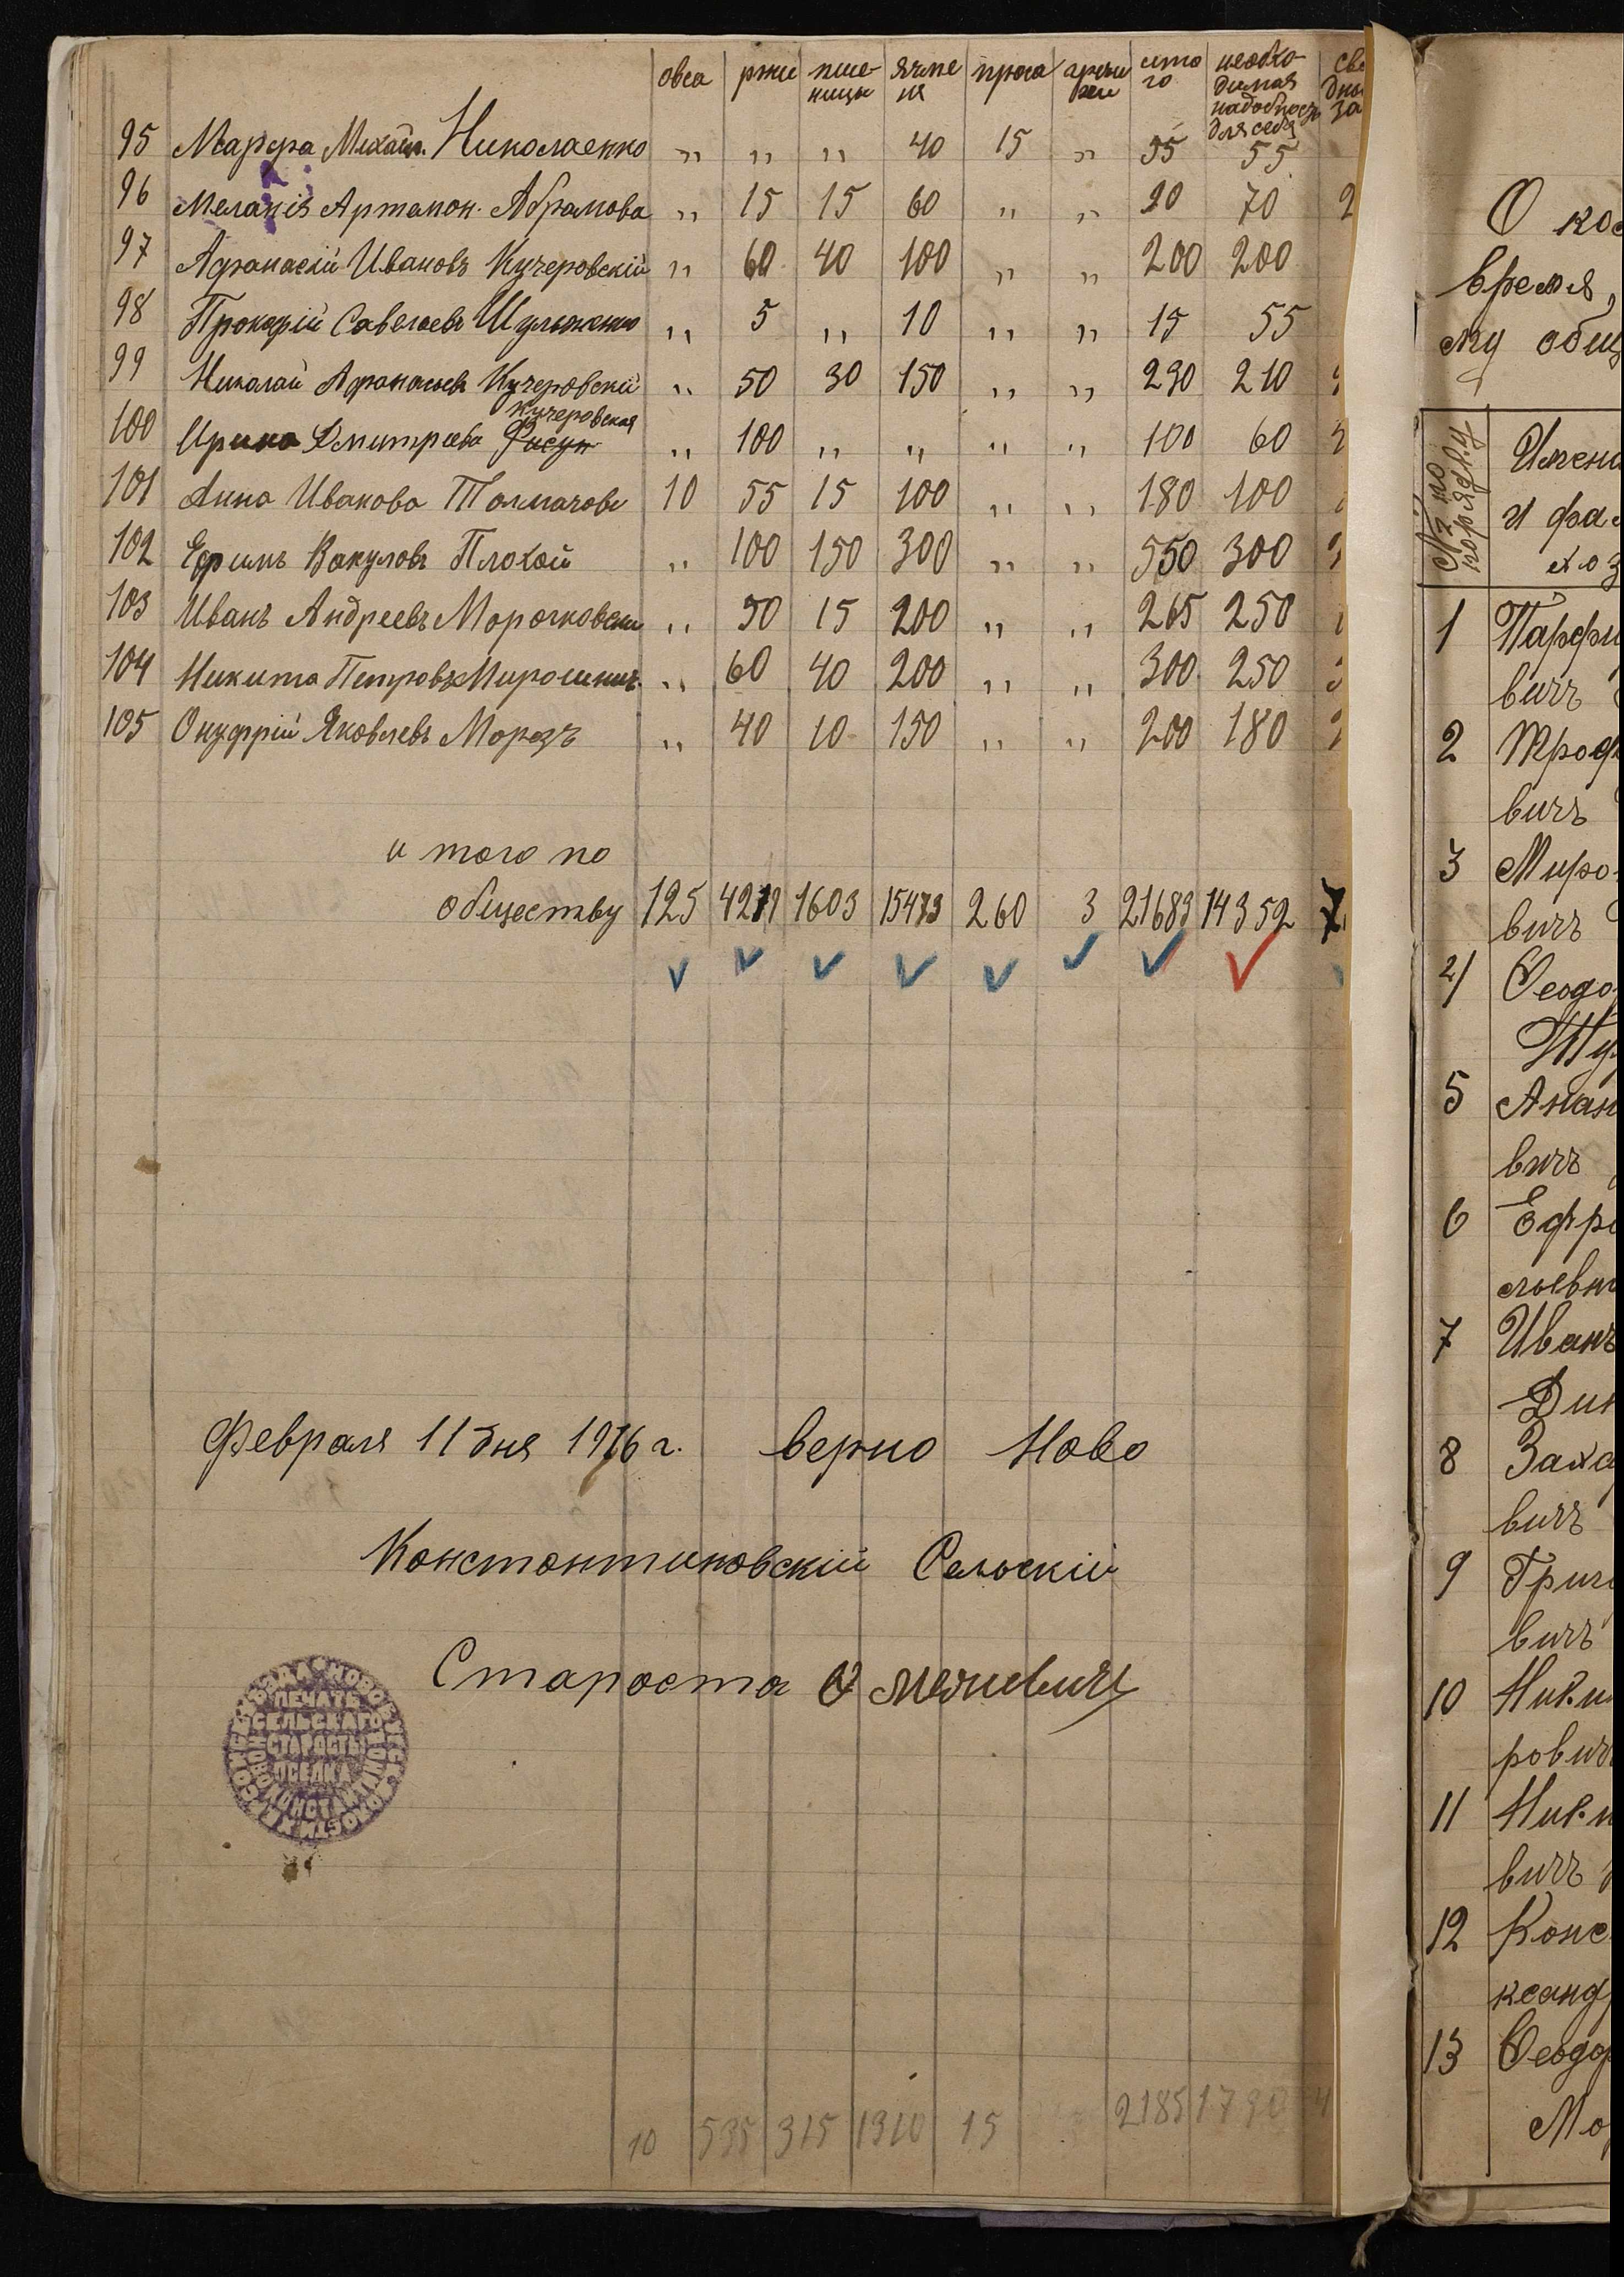 овса ржи пше- ячме проса гречи ито необхо-
ницы ня хи го димая
надобность
для себя
95 Марфа Михайл. Николаенко „ „ „ 40 15 „ 55 55
96 Меланія Артамон. Абрамова „ 15 15 60 „ „ 90 70
97 Афанасій Ивановъ Кучеровскій „ 60 40 100 „ „ 200 200
98 Прокофій Савельевъ Шульженко „ 5 „ 10 „ „ 15 55
99 Николай Афанасьевъ Кучеровскій „ 50 30 150 „ „ 230 210
кучеровская
100 Ирина Дмитрева „ 100 „ „ „ „ 100 60
101 Анна Иванова Толмачова 10 55 15 100 „ „ 180 100
102 Ефимъ Вакуловъ Плохой „ 100 150 300 „ „ 550 300
103 Иванъ Андреевъ Морочковски „ 50 15 200 „ „ 265 250
104 Никита Петровъ Мирошнич. „ 60 40 200 „ „ 300 250
105 Онуфрій Яковлевъ Морозъ „ 40 10 150 „ „ 200 180
и того по
обществу 125 4219 1603 15473 260 3 21683 14352
Февраля 11 дня 1916 г. верно Ново
Константиновскій Сельскій
Староста
ПЕЧАТЬ
СЕЛЬСКАГО
СТАРОСТЫ
ПСЕЛКА
10 535 315 1310 15 2185 1730
О кос
время,
му общ
№ по поряд.
Имена
и фа
хоз
1 Парфи
вичъ
2 Троф
вичъ
3 Миро
вичъ
4 Феодо
5 Анан
вичъ
6 Ефр
льевич
7 Иванъ
Дин
8 Заха
вичъ
9 Григ
вичъ
10 Ники
рович
11 Ники
вичъ
12 Конс
ксанд
13 Феодор
Мо